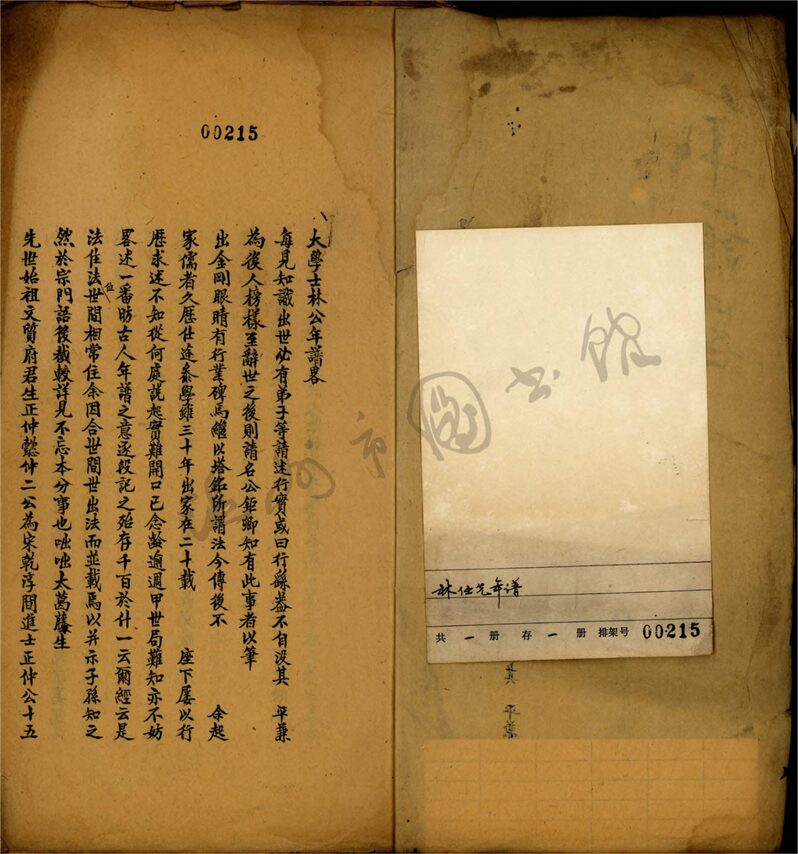 00215
大學士林公年譜畧
每見知識出世必有弟子等請述行實或曰行繇葢不自沒其 平蕪
為後人榜樣至辭世之後則請名公鉅卿知有此事者以筆
出金剛眼睛有行業碑焉繼以塔銘所謂法今傳後不 余起
家儒者久歷仕途叅學雖三十年出家在二十載 座下屢以行
歷求述不知從何處説起實難開口已念齡逾週甲世局難知亦不妨
畧述一番昉古人年譜之意逐段記之殆存千百於什一云爾經云是
法住法位世間相常住余因合世間世出法而並載焉以幷示子孫知之
然於宗門語後截較詳見不忘本分事也咄咄太葛藤生
先世始祖文質府君生正仲懿仲二公為宋乾淳間進士正仲公十五
温州市图书馆
林任先年谱
共 一 册 存 一 册 排架号 00215